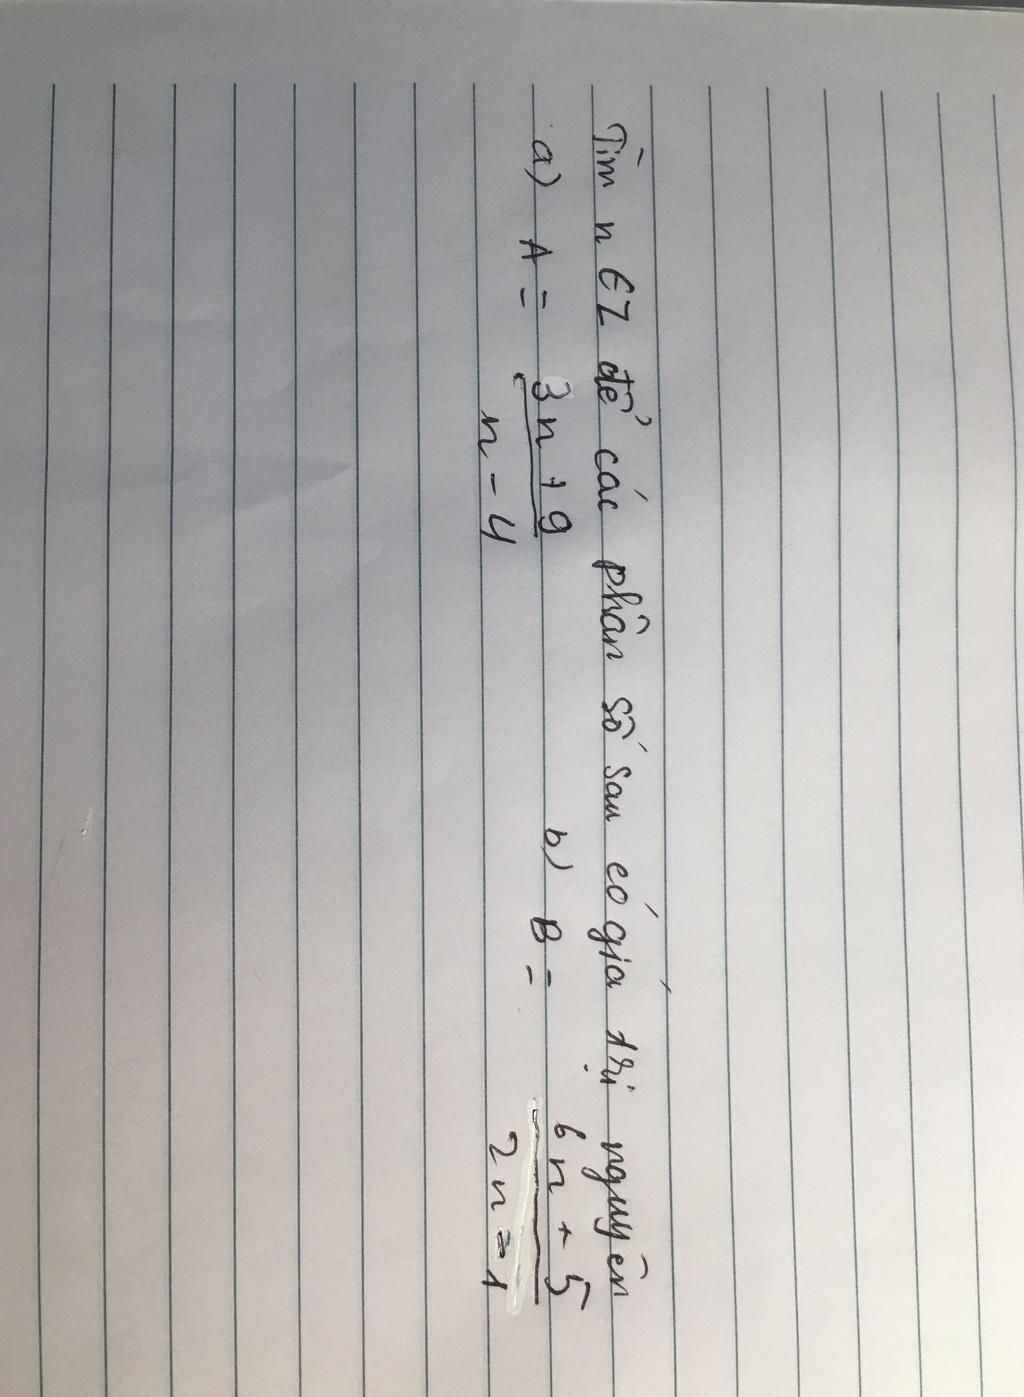 Tìm n ∈ Z để các phân số sau có giá trị nguyên
a) A = 3n + 9 / n - 4 b) B = 6n + 5 / 2n - 1